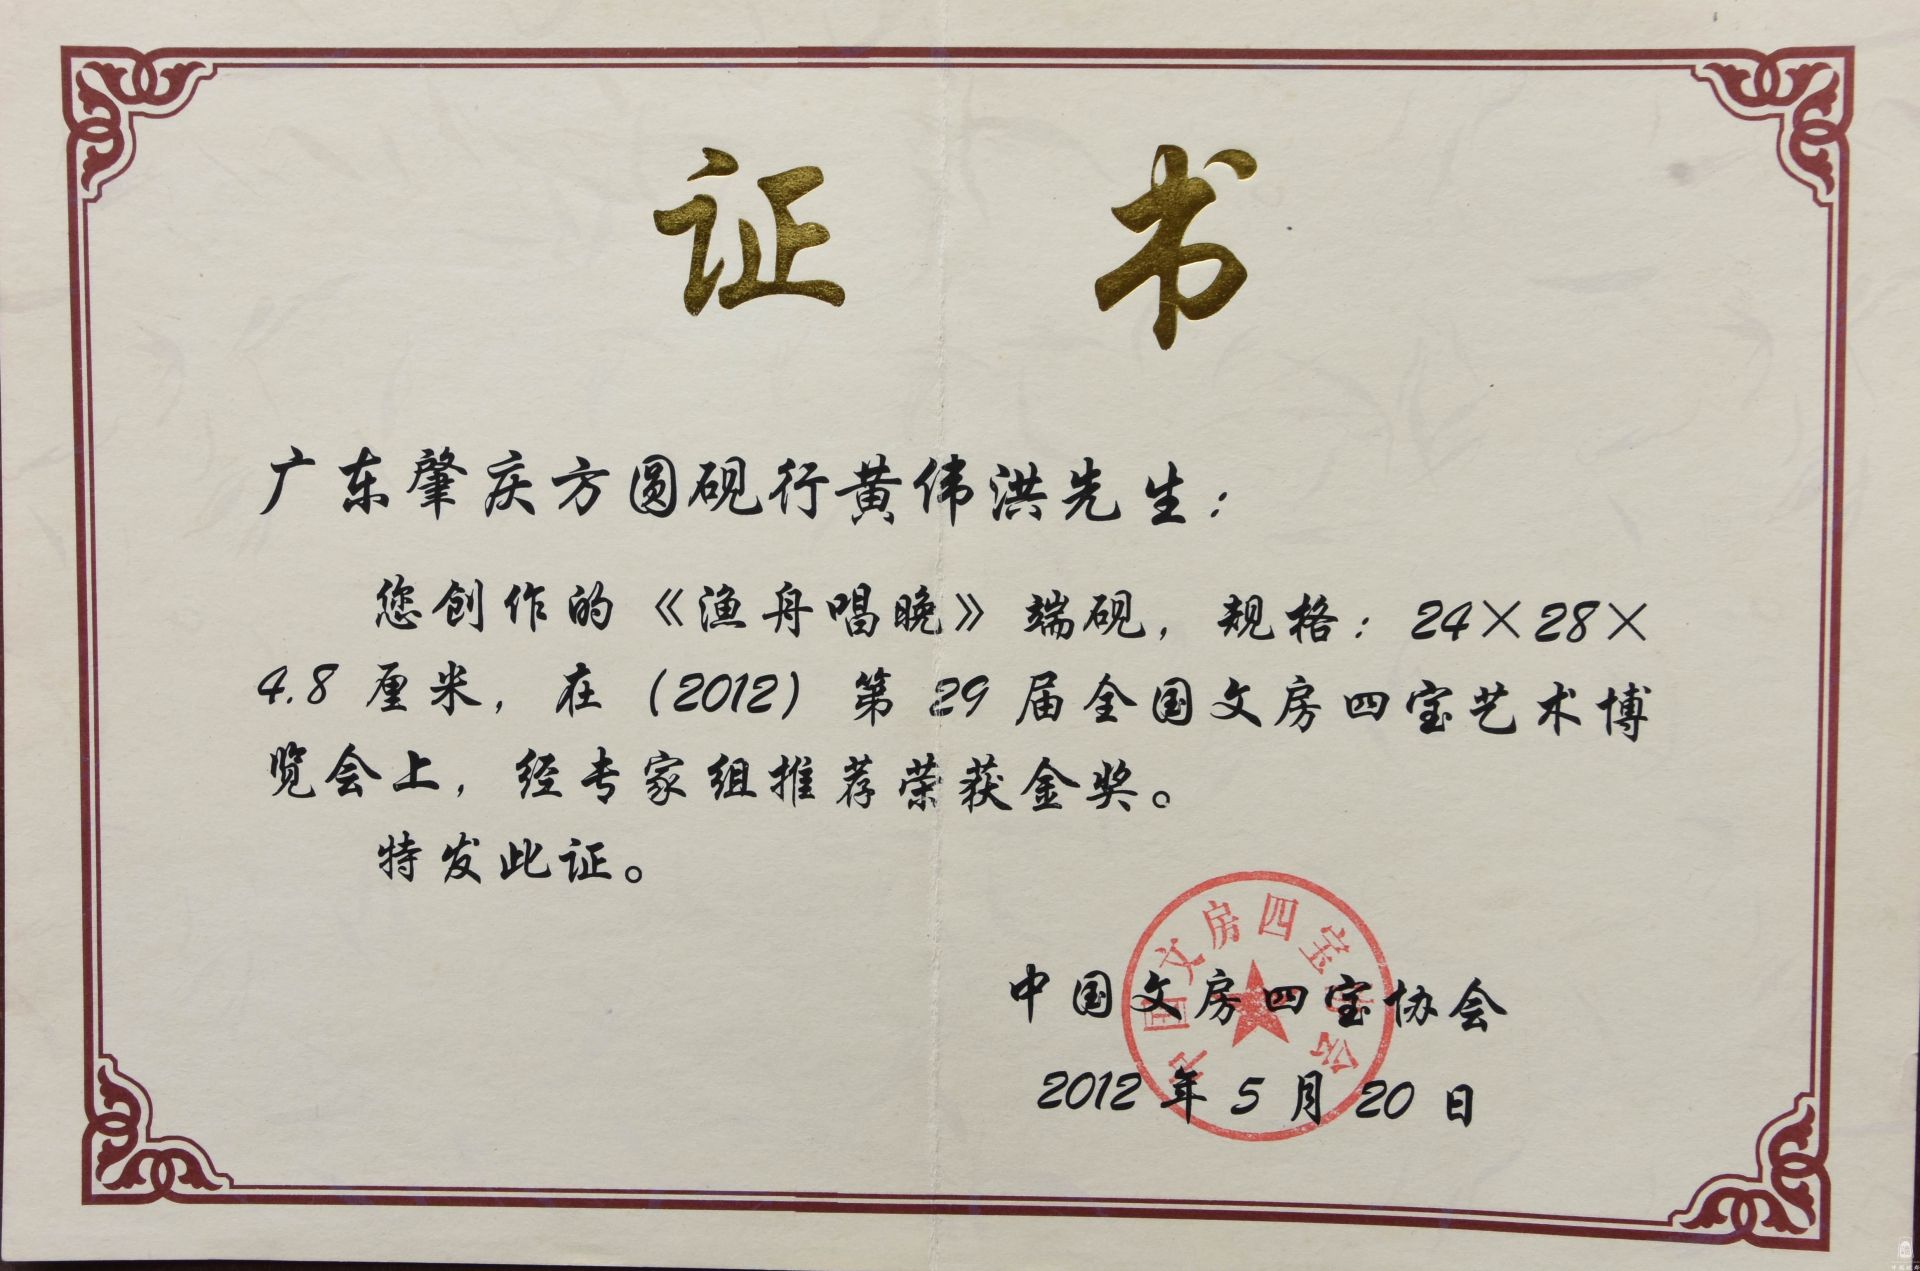 证书
广东肇庆方圆砚行黄伟洪先生：
您创作的《渔舟唱晚》端砚，规格：24×28×
4.8厘米，在（2012）第29届全国文房四宝艺术博
览会上，经专家组推荐荣获金奖。
特发此证。
中国文房四宝协会
中国文房四宝协会
2012年5月20日